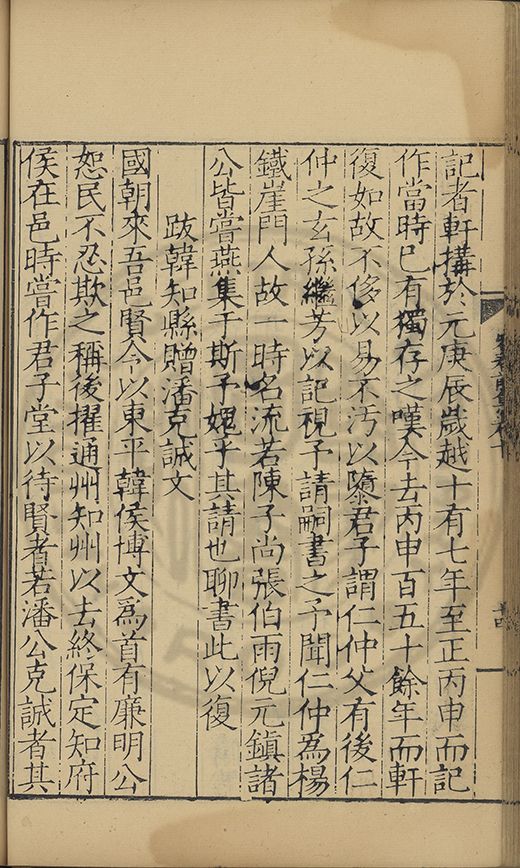 記者軒搆於元庚辰歲越十有七年至正丙申而記
作當時已有獨存之嘆今去丙申百五十餘年而軒
復如故不侈以易不汚以隳君子謂仁仲父有後仁
仲之玄孫繼芳以記視予請嗣書之予聞仁仲爲楊
鐵崖門人故一時名流若陳子尚張伯雨倪元鎮諸
公皆嘗燕集于斯予媿乎其請也聊書此以復
跋韓知縣贈潘克誠文
國朝來吾邑賢令以東平韓侯博文爲首有廉明公
恕民不忍欺之稱後擢通州知州以去終保定知府
侯在邑時嘗作君子堂以待賢者若潘公克誠者其